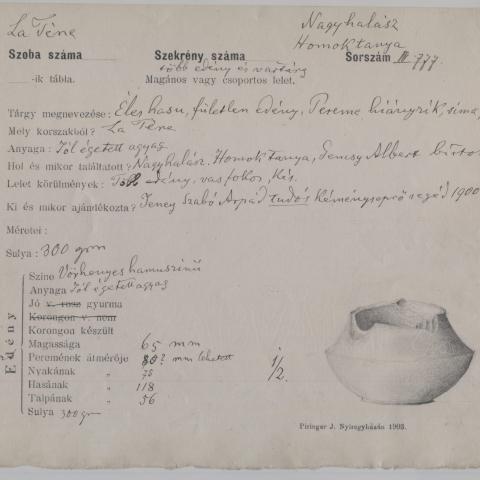 La Téne
Nagyhalász
Homoktanya
Szoba száma
Szekrény száma
Sorszám III. 777.
több edény és vastárg
-ik tábla.
Magános vagy csoportos lelet.
Tárgy megnevezése: Éles hasu, fületlen edény, Pereme hiányzik, sima,
Mely korszakból? La Téne
Anyaga: Jól égetett agyag
Hol és mikor találtatott? Nagyhalász. Homoktanya, Jemsy Albert birto
Lelet körülmények: Több edény, vas fokos, kés.
Ki és mikor ajándékozta? Jeney Szabó Árpád tudós Kéményseprő segéd 1900
Méretei:
Sulya: 300 grm
Edény
Szine Vörhenyes hamuszinű
Anyaga Jól égetett agyag
Jó v. rosz gyurma
Korongon v. nem
Korongon készült
Magassága 65 mm
Peremének átmérője 80? mm lehetett
Nyakának " 78
Hasának " 118
Talpának " 56
Sulya 300 gr
1/2.
Piringer J. Nyiregyházán 1903.